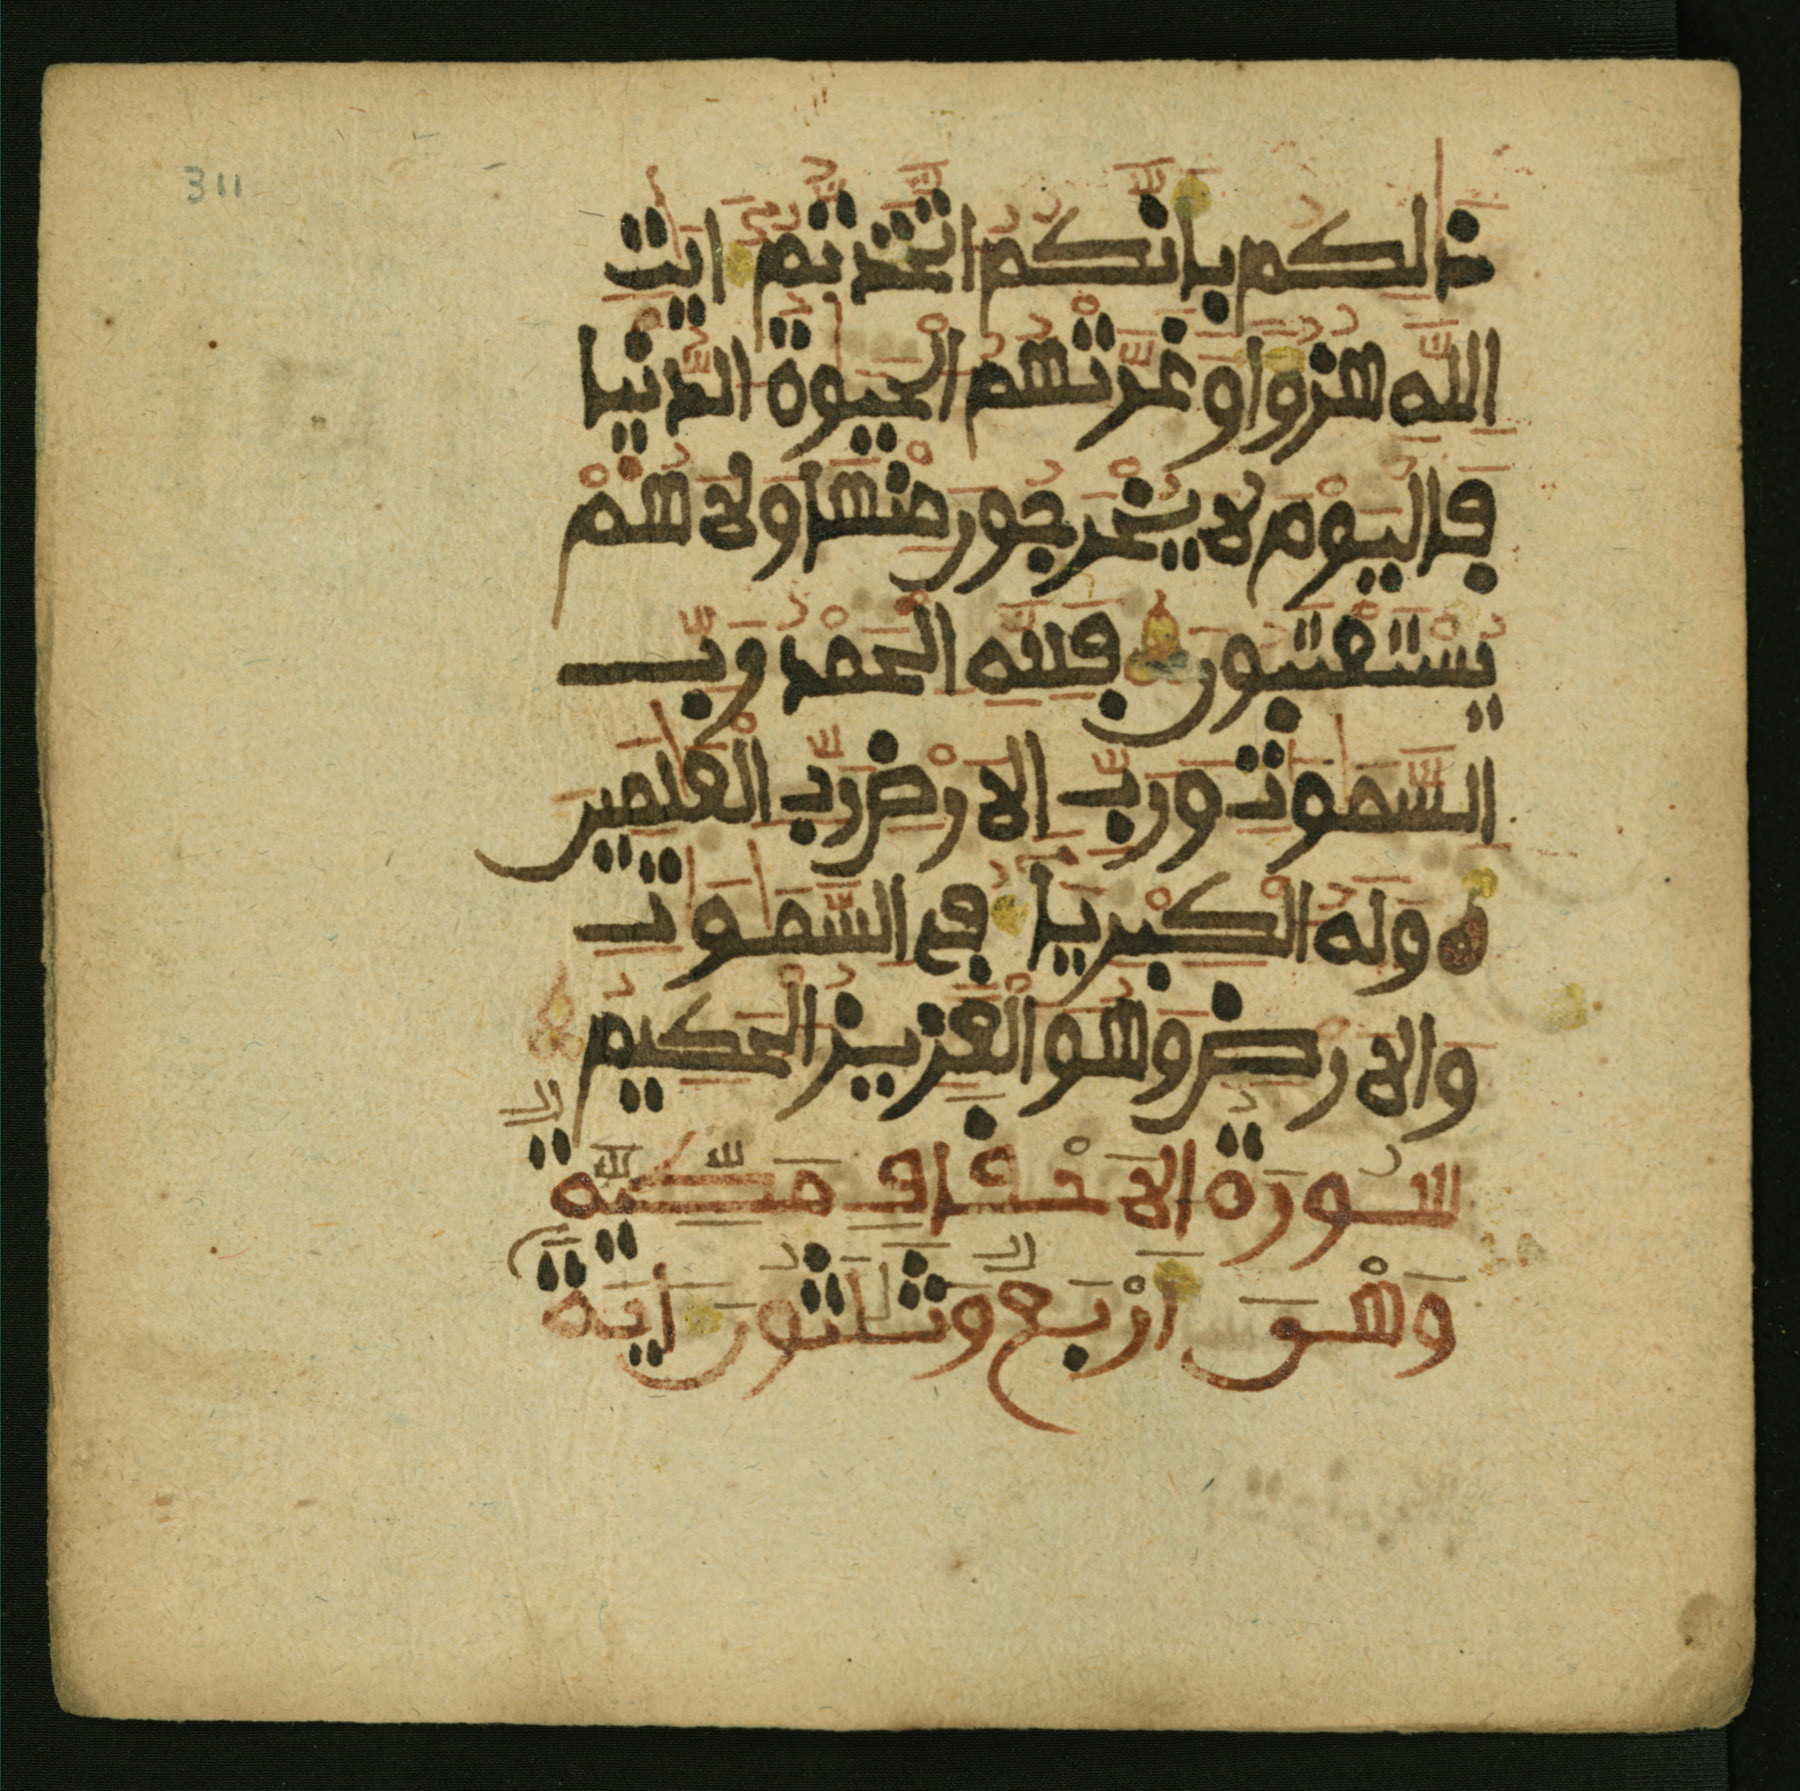 311
ذَٰلِكُم بِأَنَّكُمُ اتَّخَذتُّمُ ءَايَٰتِ
اللَّهِ هُزُؤًا وَغَرَّتْهُمُ الْحَيَوٰةُ الدُّنْيَا
فَالْيَوْمَ لَا يُخْرَجُونَ مِنْهَا وَلَا هُمْ
يُسْتَعْتَبُونَ فَلِلَّهِ الْحَمْدُ رَبِّ
السَّمَٰوَٰتِ وَرَبِّ الَارْضِ رَبِّ الْعَٰلَمِينَ
وَلَهُ الْكِبْرِيَاءُ فِي السَّمَٰوَٰتِ
وَالَارْضِ وَهُوَ الْعَزِيزُ الْحَكِيمُ
سُورَةُ الَاحْقَافِ مَكِّيَّةٌ
وَهْيَ أَرْبَعٌ وَثَلَٰثُونَ ءَايَةً